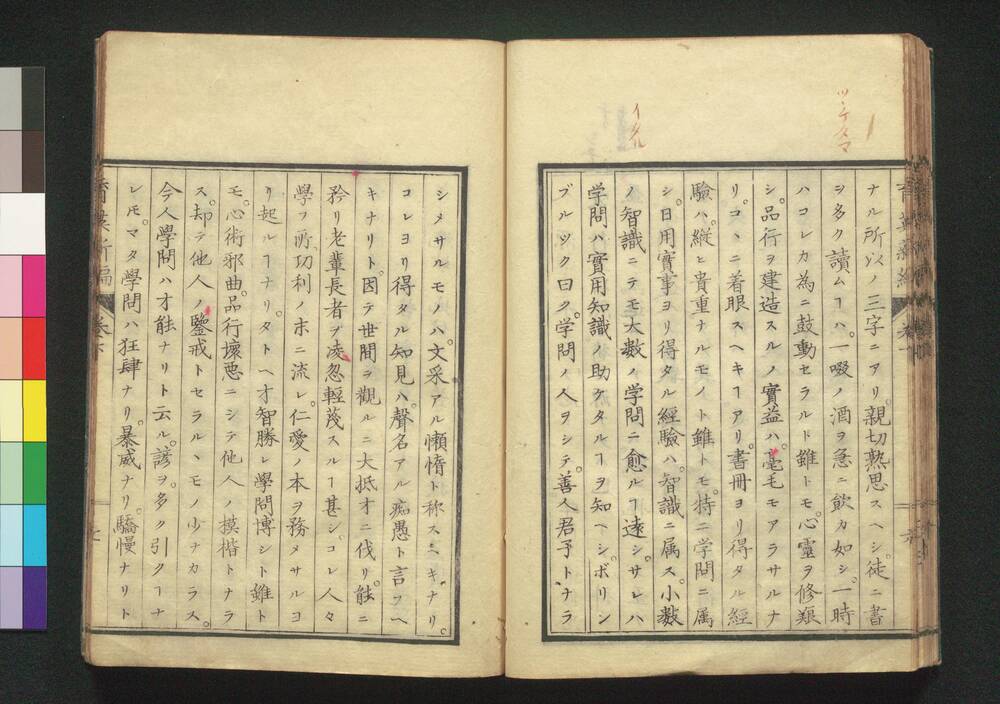 ツヽシマ
イタル
ナル所以ノ三字ニアリ。親切熟思スヘシ。徒ニ書
ヲ多ク讀ムヿハ。一啜ノ酒ヲ急ニ飲カ如シ。一時
ハコレカ為ニ鼓動セラルト雖トモ。心靈ヲ修艱
シ。品行ヲ建造スルノ實益ハ。毫毛モアラサルナ
リ。コヽニ着眼スヘキヿアリ。書冊ヨリ得タル経
驗ハ。縦ヒ貴重ナルモノト雖トモ。持ニ学問ニ属
シ。日用實事ヨリ得タル經驗ハ。智識ニ属ス。小数
ノ智識ニテモ大数ノ学問ニ愈ルヿ遠シ。サレハ
学問ハ實用知識ノ助ケタルヿヲ知ヘシ。ボリン
ブルツク曰ク。学問ノ人ヲシテ。善人君子トナラ
シメサルモノハ。文采アル懶惰ト称スヘキナリ。
コレヨリ得タル知見ハ。聲名アル痴愚ト言フヘ
キナリト。因テ世間ヲ觀ルニ大抵才ニ伐リ。能ニ
矜リ老輩長者ヲ凌忽輕蔑スルヿ甚シ。コレ人々
學フ所、功利ノホニ流レ。仁愛ノ本ヲ務メサルヨ
リ起ルヿナリ。タトヘ才智勝レ学問博シト雖ト
モ。心術邪曲。品行壞悪ニシテ他人ノ模楷トナラ
ス。却テ他人ノ鑒戒トセラルヽモノ少ナカラス。
今人學問ハ才能ナリト云ル。諺ヲ。多ク引クヿナ
レモ。マタ學問ハ狂肆ナリ。暴威ナリ。驕慢ナリト